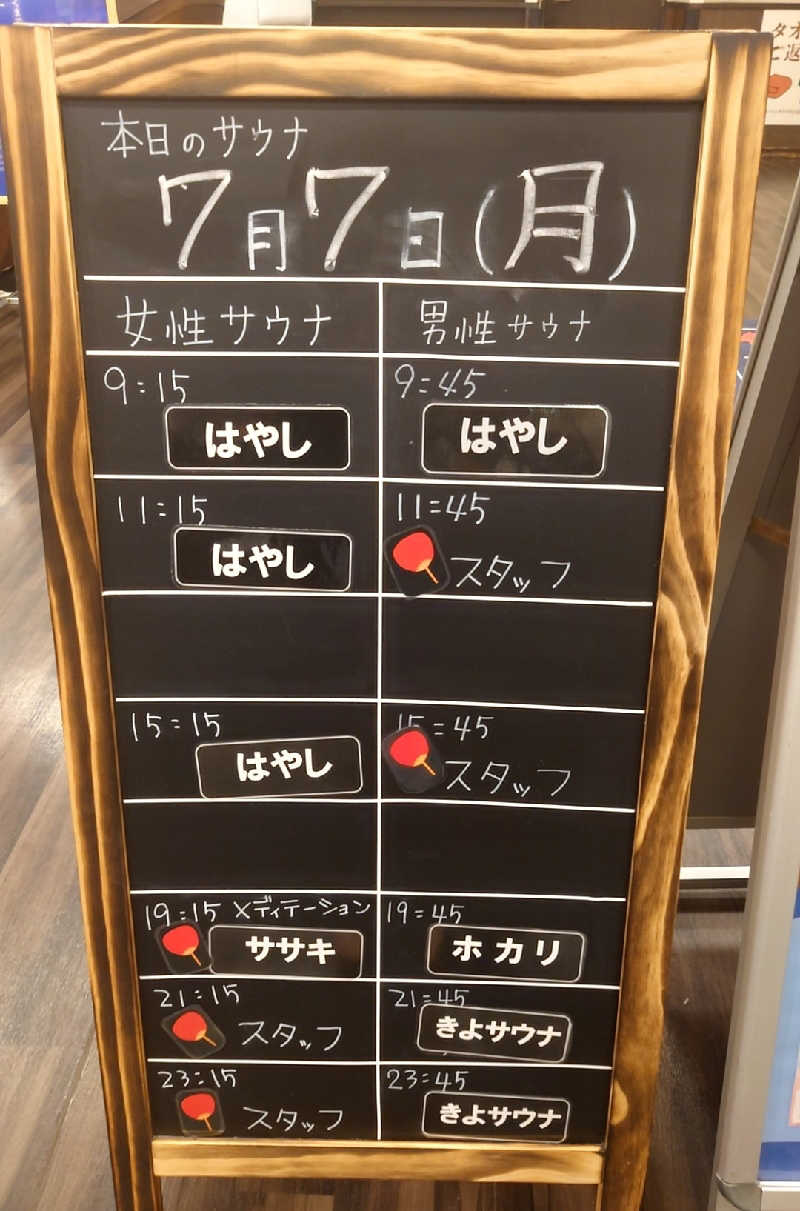 本日のサウナ
7月7日(月)
女性サウナ 男性サウナ
9:15 9:45
はやし はやし
11:15 11:45
はやし スタッフ
15:15 15:45
はやし スタッフ
19:15 メディテーション 19:45
ササキ ホカリ
21:15 21:45
スタッフ きよサウナ
23:15 23:45
スタッフ きよサウナ